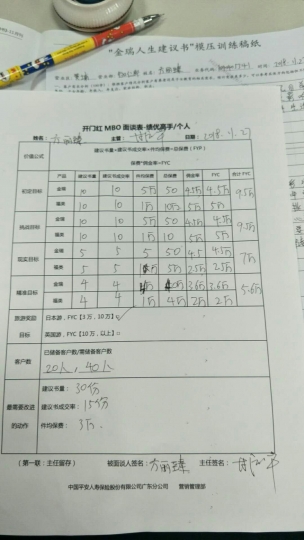 "金瑞人生建议书"模压训练稿纸
开门红 MBO 面谈表-绩优高手/个人
姓名： 主管： 时间：2018.11.27
价值公式 建议书量×建议书成交率×件均保费=总保费（FYP）
保费*佣金率=FYC
产品 建议书量 建议书成交率 件均保费 总保费 佣金率 FYC 合计 FYC
初定目标 金瑞 10 10 5万 50 4.5万 4.5万 9.5万
福类 10 10 1万 10万 5万 5万
挑战目标 金瑞 10 10 5万 50 4.5万 9.5万
福类 10 10 1万 10 5万 5万
现实目标 金瑞 5 5 5万 50 4.5 4.5万 7万
福类 5 5 5万 2.5万 2.5万
瞄准目标 金瑞 4 4 3.6万 3.6万 5.6万
福类 4 4 1万 4万 2万 2万
旅游奖励 日本游，FYC【3万，10万】
目标 英国游，FYC【10万以上】
客户数 已储备客户数/需储备客户数
20人，40人
建议书量：30份
最需要改进 建议书成交率：15份
的动作 件均保费：3万
（第一联：主任留存） 被面谈人签名： 主任签名：
中国平安人寿保险股份有限公司广东分公司 营销管理部